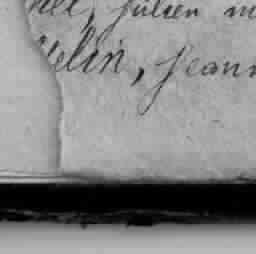 , Julien
elin, Jeann